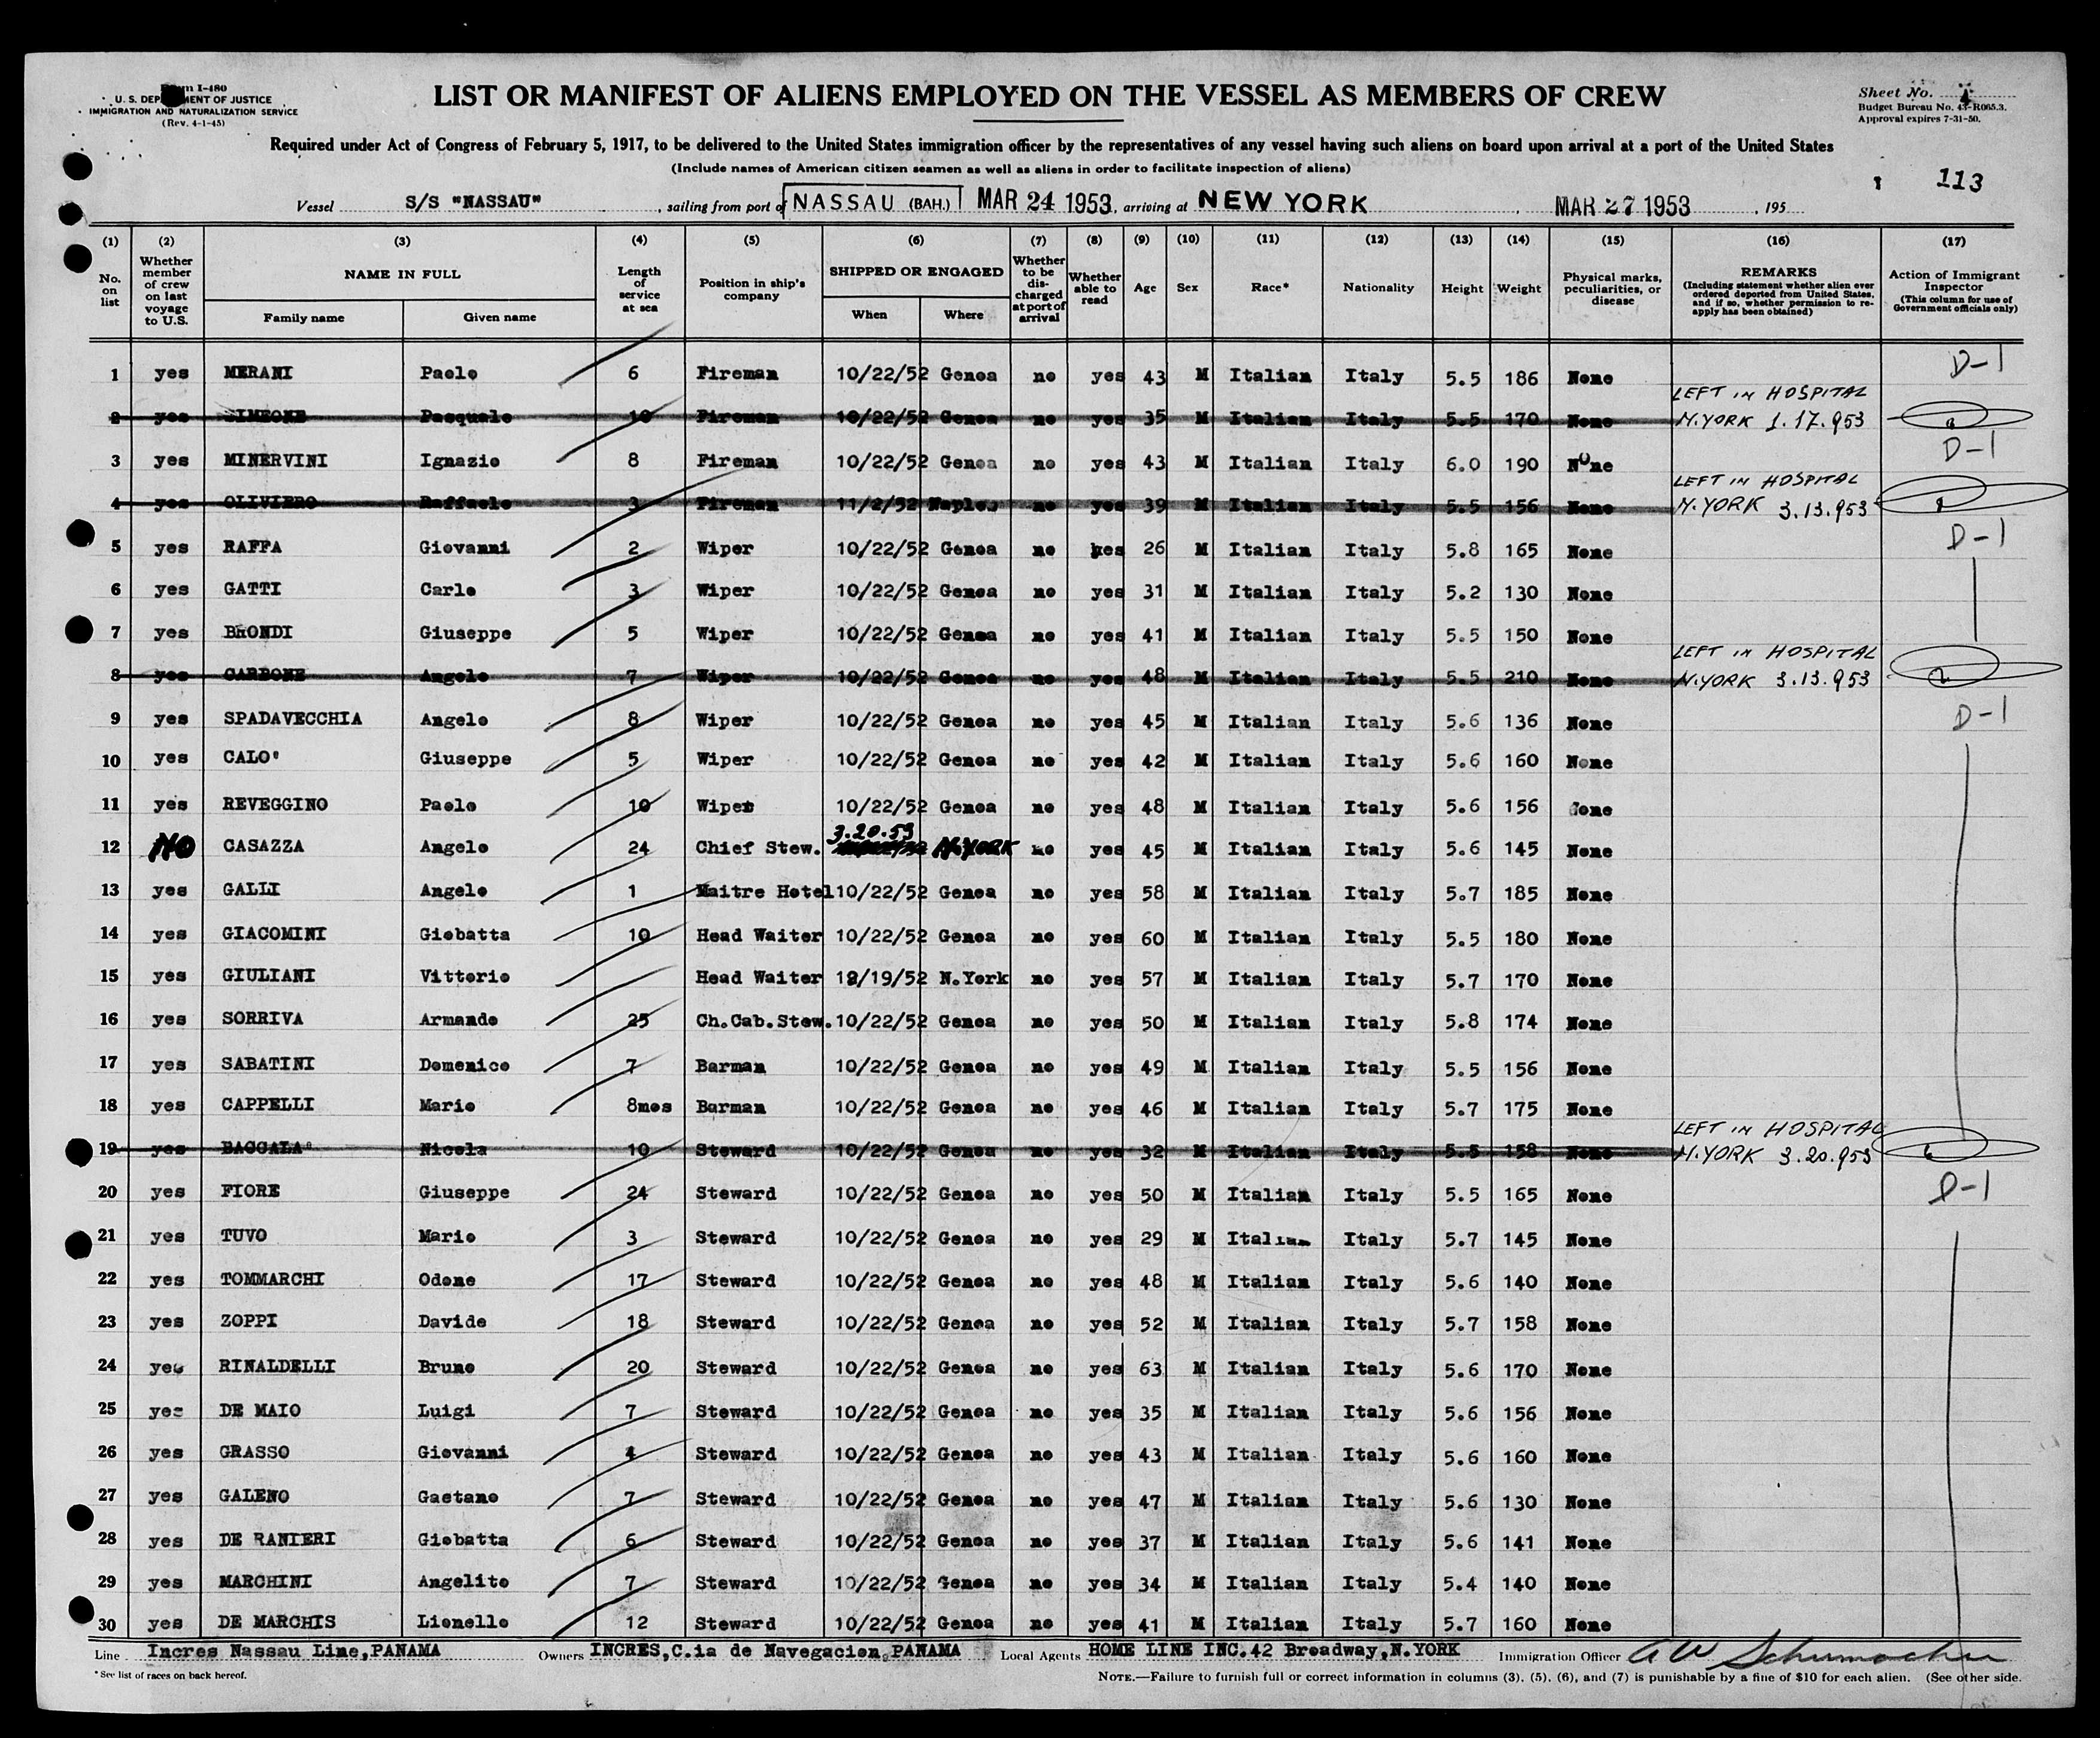 Form I-480
U. S. DEPARTMENT OF JUSTICE
IMMIGRATION AND NATURALIZATION SERVICE
(Rev. 4-1-45)
LIST OR MANIFEST OF ALIENS EMPLOYED ON THE VESSEL AS MEMBERS OF CREW
Sheet No. 4
Budget Bureau No. 43-R065.3.
Approval expires 7-31-50.
Required under Act of Congress of February 5, 1917, to be delivered to the United States immigration officer by the representatives of any vessel having such aliens on board upon arrival at a port of the United States
(Include names of American citizen seamen as well as aliens in order to facilitate inspection of aliens)
113
Vessel S/S "NASSAU", sailing from port of NASSAU (BAH.) MAR 24 1953, arriving at NEW YORK, MAR 27 1953, 195
(1) No. on list
(2) Whether member of crew on last voyage to U.S.
(3) NAME IN FULL Family name Given name
(4) Length of service at sea
(5) Position in ship's company
(6) SHIPPED OR ENGAGED When Where
(7) Whether to be discharged at port of arrival
(8) Whether able to read
(9) Age
(10) Sex
(11) Race*
(12) Nationality
(13) Height
(14) Weight
(15) Physical marks, peculiarities, or disease
(16) REMARKS (Including statement whether alien ever ordered deported from United States, and if so, whether permission to reapply has been obtained)
(17) Action of Immigrant Inspector (This column for use of Government officials only)
1 yes MERANI Paolo 6 Fireman 10/22/52 Genoa no yes 43 M Italian Italy 5.5 186 None D-1
2 yes SIMEONE Pasquale 10 Fireman 10/22/52 Genoa no yes 35 M Italian Italy 5.5 170 None LEFT IN HOSPITAL N.YORK 1.17.953
3 yes MINERVINI Ignazio 8 Fireman 10/22/52 Genoa no yes 43 M Italian Italy 6.0 190 None D-1
4 yes OLIVIERO Raffaele 3 Fireman 11/2/52 Naples no yes 39 M Italian Italy 5.5 156 None LEFT IN HOSPITAL N.YORK 3.13.953
5 yes RAFFA Giovanni 2 Wiper 10/22/52 Genoa no yes 26 M Italian Italy 5.8 165 None D-1
6 yes GATTI Carlo 3 Wiper 10/22/52 Genoa no yes 31 M Italian Italy 5.2 130 None
7 yes BRONDI Giuseppe 5 Wiper 10/22/52 Genoa no yes 41 M Italian Italy 5.5 150 None
8 yes CARBONE Angelo 7 Wiper 10/22/52 Genoa no yes 48 M Italian Italy 5.5 210 None LEFT IN HOSPITAL N.YORK 3.13.953
9 yes SPADAVECCHIA Angelo 8 Wiper 10/22/52 Genoa no yes 45 M Italian Italy 5.6 136 None D-1
10 yes CALO' Giuseppe 5 Wiper 10/22/52 Genoa no yes 42 M Italian Italy 5.6 160 None
11 yes REVEGGINO Paolo 10 Wiper 10/22/52 Genoa no yes 48 M Italian Italy 5.6 156 None
12 NO CASAZZA Angelo 24 Chief Stew. 3.20.53 N.YORK no yes 45 M Italian Italy 5.6 145 None
13 yes GALLI Angelo 1 Maitre Hotel 10/22/52 Genoa no yes 58 M Italian Italy 5.7 185 None
14 yes GIACOMINI Giobatta 10 Head Waiter 10/22/52 Genoa no yes 60 M Italian Italy 5.5 180 None
15 yes GIULIANI Vittorio Head Waiter 12/19/52 N.York no yes 57 M Italian Italy 5.7 170 None
16 yes SORRIVA Armando 25 Ch.Cab.Stew. 10/22/52 Genoa no yes 50 M Italian Italy 5.8 174 None
17 yes SABATINI Domenico 7 Barman 10/22/52 Genoa no yes 49 M Italian Italy 5.5 156 None
18 yes CAPPELLI Mario 8mos Barman 10/22/52 Genoa no yes 46 M Italian Italy 5.7 175 None
19 yes BACCALA' Nicola 10 Steward 10/22/52 Genoa no yes 32 M Italian Italy 5.5 158 None LEFT IN HOSPITAL N.YORK 3.20.953
20 yes FIORE Giuseppe 24 Steward 10/22/52 Genoa no yes 50 M Italian Italy 5.5 165 None D-1
21 yes TUVO Mario 3 Steward 10/22/52 Genoa no yes 29 M Italian Italy 5.7 145 None
22 yes TOMMARCHI Odone 17 Steward 10/22/52 Genoa no yes 48 M Italian Italy 5.6 140 None
23 yes ZOPPI Davide 18 Steward 10/22/52 Genoa no yes 52 M Italian Italy 5.7 158 None
24 yes RINALDELLI Bruno 20 Steward 10/22/52 Genoa no yes 63 M Italian Italy 5.6 170 None
25 yes DE MAIO Luigi 7 Steward 10/22/52 Genoa no yes 35 M Italian Italy 5.6 156 None
26 yes GRASSO Giovanni 4 Steward 10/22/52 Genoa no yes 43 M Italian Italy 5.6 160 None
27 yes GALENO Gaetano 7 Steward 10/22/52 Genoa no yes 47 M Italian Italy 5.6 130 None
28 yes DE RANIERI Giobatta 6 Steward 10/22/52 Genoa no yes 37 M Italian Italy 5.6 141 None
29 yes MARCHINI Angelito 7 Steward 10/22/52 Genoa no yes 34 M Italian Italy 5.4 140 None
30 yes DE MARCHIS Lionello 12 Steward 10/22/52 Genoa no yes 41 M Italian Italy 5.7 160 None
Line Incres Nassau Line,PANAMA Owners INCRES,C.ia de Navegacion,PANAMA Local Agents HOME LINE INC.42 Broadway,N.YORK Immigration Officer AW Schumacher
*See list of races on back hereof.
NOTE.—Failure to furnish full or correct information in columns (3), (5), (6), and (7) is punishable by a fine of $10 for each alien. (See other side.